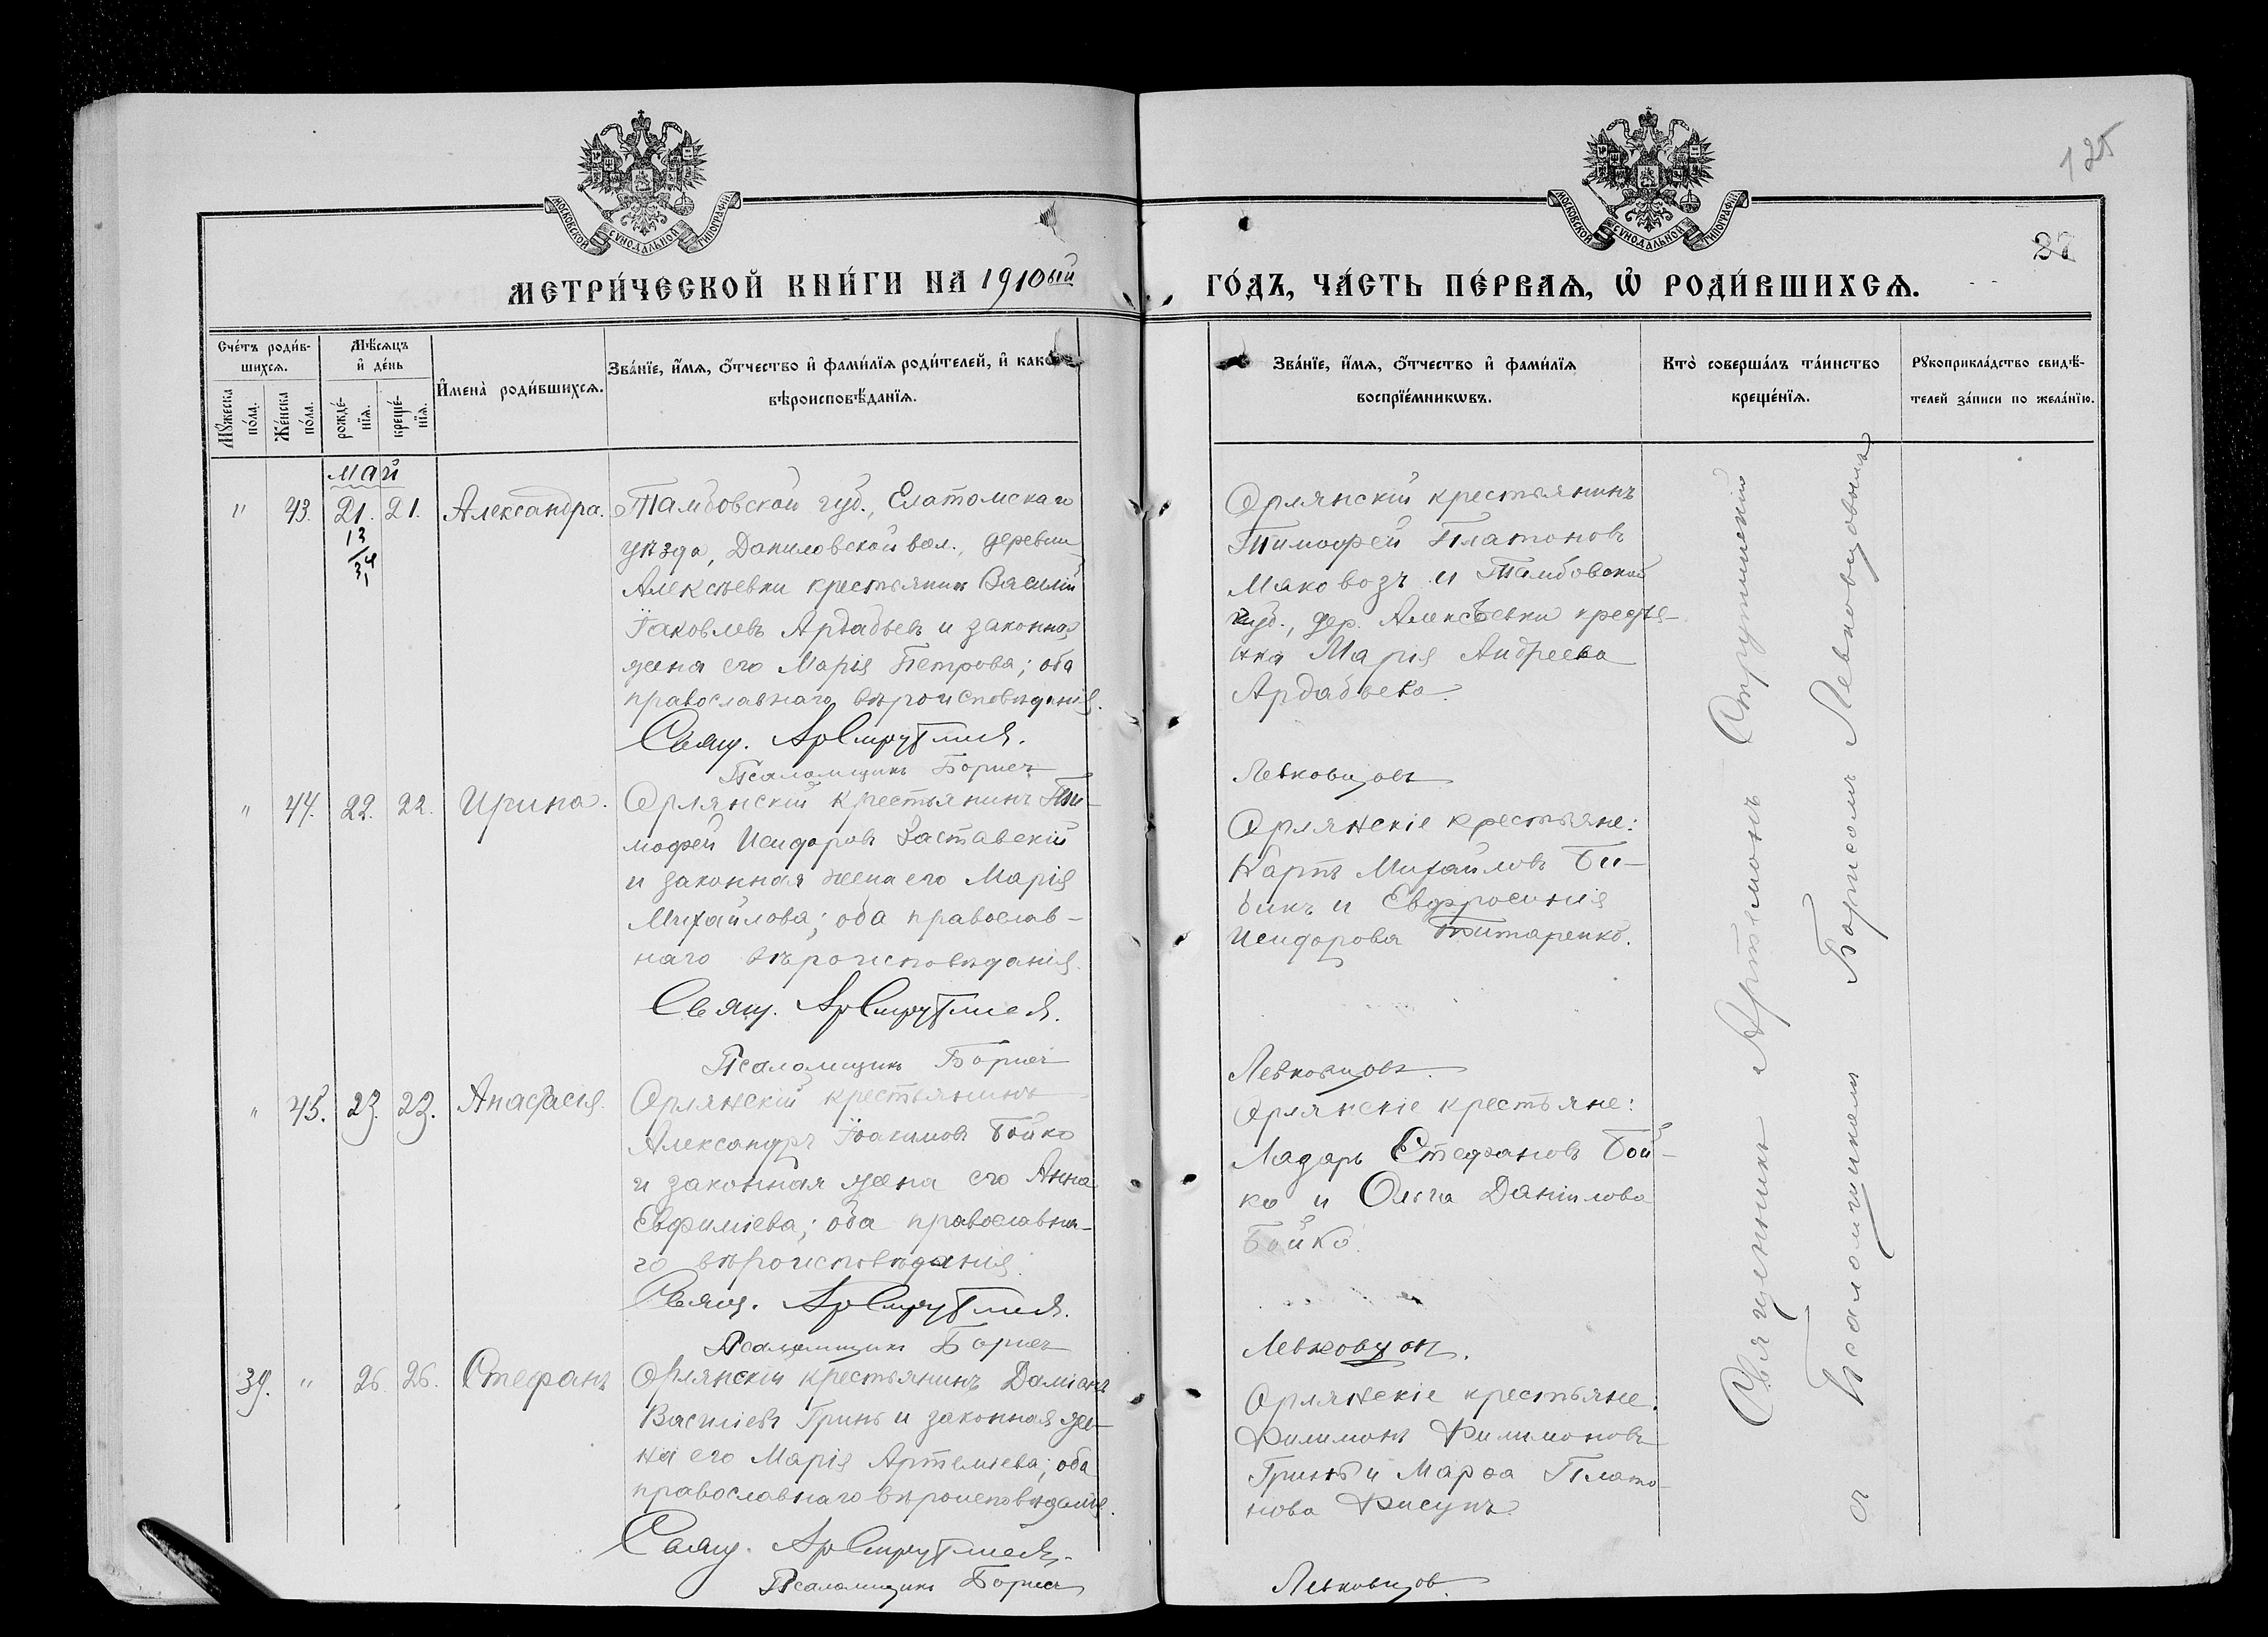 125
27
МОСКОВСКОЙ СѴНОДАЛЬНОЙ ТИПОГРАФІИ
МОСКОВСКОЙ СѴНОДАЛЬНОЙ ТИПОГРАФІИ
МЕТРИ́ЧЕСКОЙ КНИ́ГИ НА 1910ый
ГО́ДЪ, ЧА́СТЬ ПЕ́РВАѦ, Ѡ҆ РОДИ́ВШИХСѦ.
Сче́тъ роди́в-
шихсѧ.
Мꙋ́жеска по́ла.
Же́нска по́ла.
Мѣ́сѧцъ
и҆ де́нь
рожде́-
нїѧ.
креще́-
нїѧ.
И҆мена̀ роди́вшихсѧ.
Зва́нїе, и҆́мѧ, ѻ҆́тчество и҆ фами́лїѧ роди́телей, и҆ како́гѡ
вѣроисповѣ́данїѧ.
Зва́нїе, и҆́мѧ, ѻ҆́тчество и҆ фами́лїѧ
воспрїе́мникѡвъ.
Кто̀ соверша́лъ та́инство
креще́нїѧ.
Рꙋкоприкла́дство свидѣ́-
телей за́писи по жела́нїю.
май
" 43. 21. 21. Александра.
13
Тамбовской губ., Елатомскаго
уѣзда, Даниловской вол., деревни
Алексѣевки крестьянинъ Василій
Іаковлевъ Ардабьевъ и законная
жена его Марія Петрова; оба
православнаго вѣроисповѣданія.
Свящ. Ар Струтинскій.
Псаломщикъ Борисъ
Орлянскій крестьянинъ
Тимофей Платоновъ
Маковозъ и Тамбовской
губ., дер. Алексѣевки крестья-
нка Марія Андреева
Ардабьева.
Левковцовъ
" 44. 22. 22. Ирина.
Орлянскій крестьянинъ Ти-
мофей Исидоровъ Заставскій
и законная жена его Марія
Михайлова; оба православ-
наго вѣроисповѣданія.
Свящ. Ар Струтинскій.
Псаломщикъ Борисъ
Орлянскіе крестьяне:
Карпъ Михайловъ Би-
бикъ и Евфросинія
Исидорова Титаренко.
Левковцовъ.
" 45. 23. 23. Анастасія.
Орлянскій крестьянинъ
Александръ Іоакимовъ Бойко
и законная жена его Анна
Евфиміева; оба православна-
го вѣроисповѣданія.
Свящ. Ар Струтинскій.
Псаломщикъ Борисъ
Орлянскіе крестьяне:
Лазарь Стефановъ Бой-
ко и Ольга Даніилова
Бойко.
Левковцовъ.
39. " 26. 26. Стефанъ
Орлянскій крестьянинъ Даміанъ
Василіевъ Гринь и законная же-
на его Марія Артеміева; оба
православнаго вѣроисповѣданія.
Свящ. Ар Струтинскій.
Псаломщикъ Борисъ
Орлянскіе крестьяне:
Филимонъ Филимоновъ
Гринь и Марѳа Плато-
нова Фисунъ.
Левковцовъ.
Священникъ Артемонъ Струтинскій
съ Псаломщикомъ Борисомъ Левковцовымъ